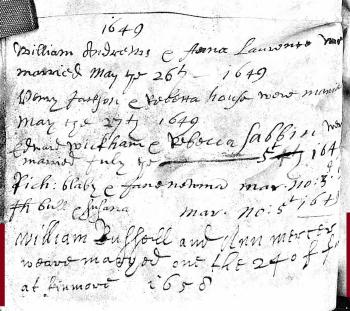 1649
William Andrews & Anna Lawrence were
married May ye 26th - 1649
Henry Jackson & Rebecca house were married
May the 27th 1649
Edward Wickham & Rebecca Sabbin we
married July ye 5th 164
Rich: blaby & Jane newma mar. no: 5
& Susana mar. no: 5t 164
William Bussell and Ann Mercer
weare maryed one the 24 of
at 1658